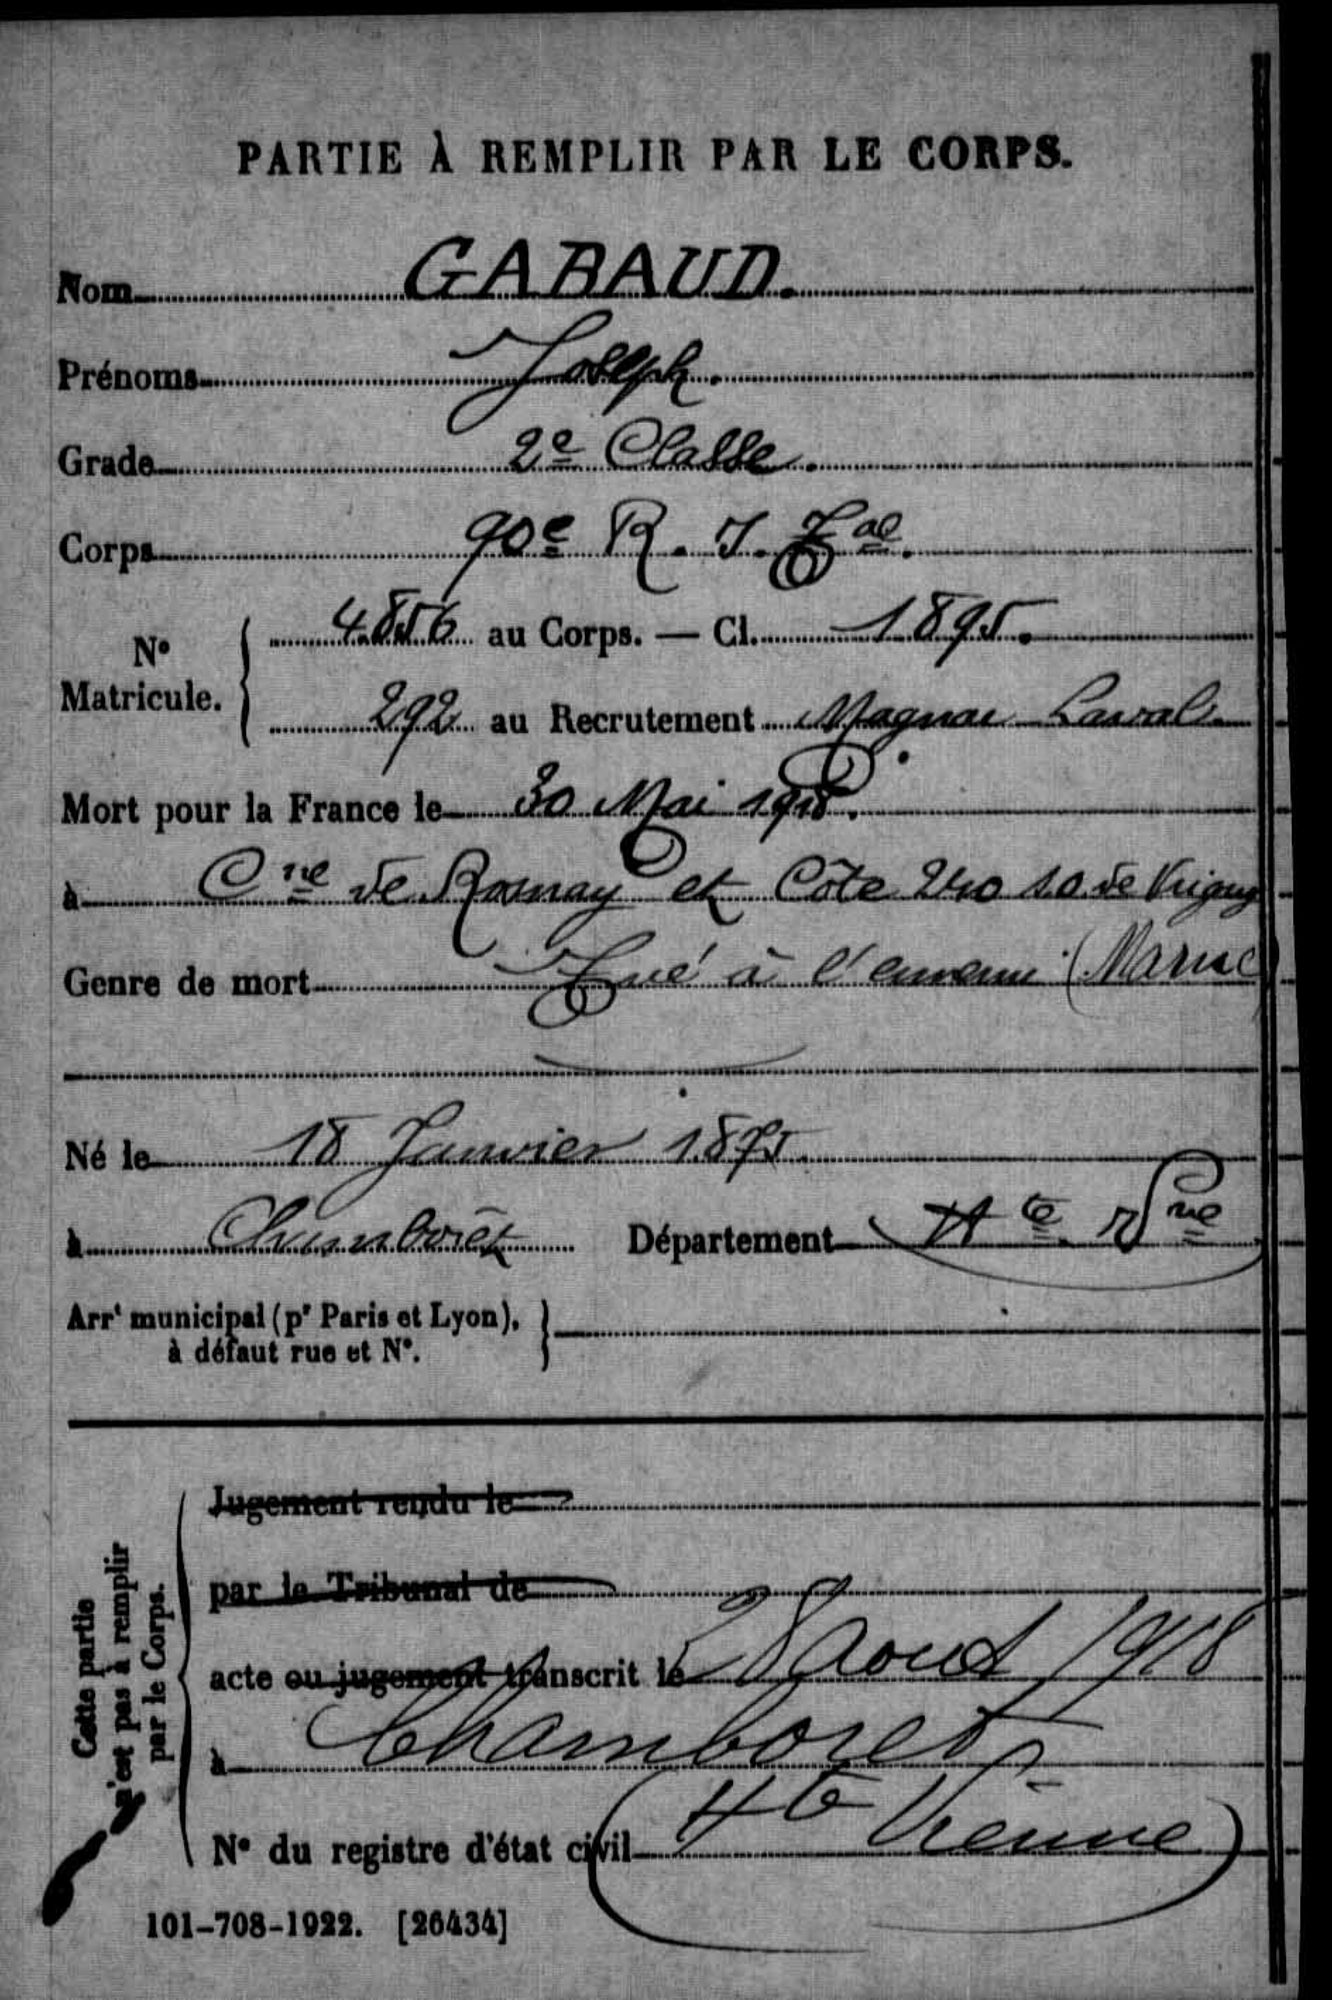 PARTIE À REMPLIR PAR LE CORPS.
Nom GABAUD.
Prénoms Joseph.
Grade 2e Classe.
Corps 90e R. I. Tal.
4.856 au Corps. — Cl. 1895.
N° Matricule.
292 au Recrutement Magnac Laval.
Mort pour la France le 30 Mai 1918.
à Cne de Rosnay et Côte 240 S.O. de Vrigny
Genre de mort Tué à l'ennemi (Marne)
Né le 18 Janvier 1875.
à Chamborêt Département Hte Vne
Arrt municipal (pr Paris et Lyon),
à défaut rue et N°.
Cette partie
n'est pas à remplir
par le Corps.
Jugement rendu le
par le Tribunal de
acte ou jugement transcrit le 28 Aout 1918
à Chamboret
N° du registre d'état civil (Hte Vienne)
101-708-1922. [26434]